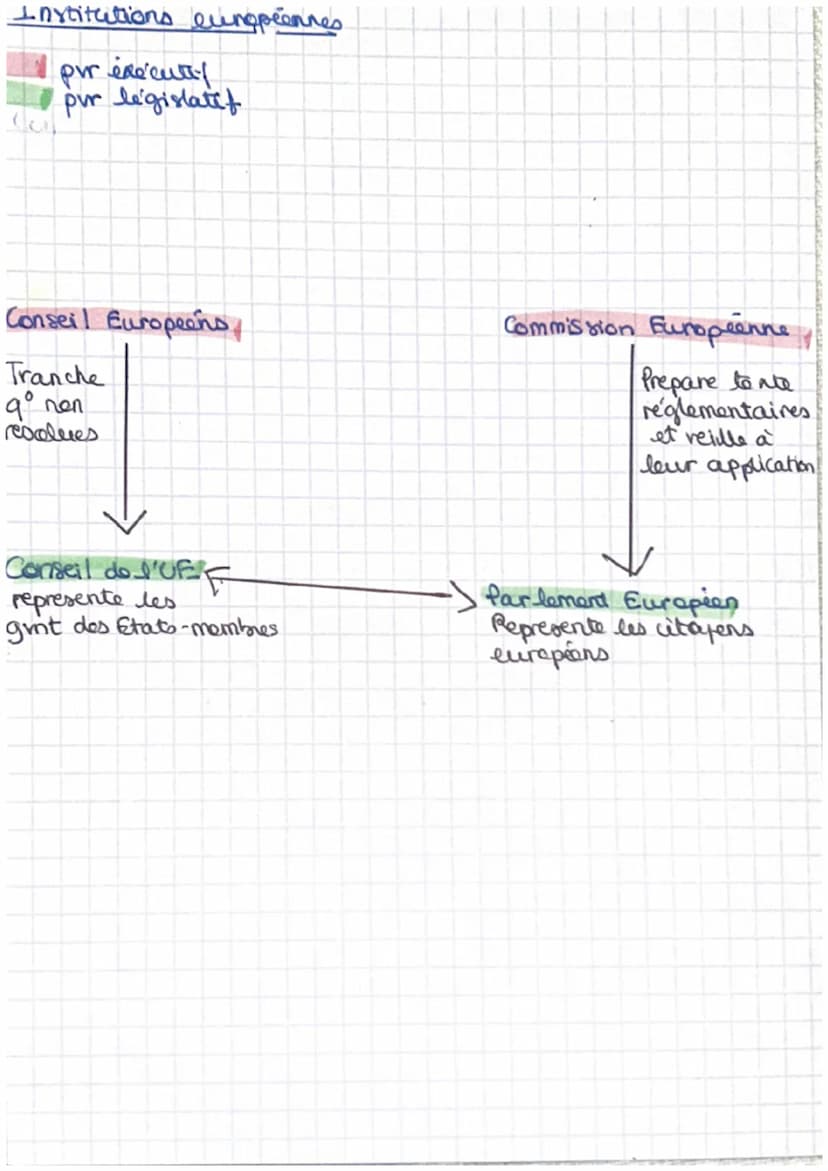 Institutions européennes
pvr éxécutif
pvr législatif
Conseil Européens
Tranche
q° non
resolues
Commission Européenne
Prepare
réglementaires
et veille à
leur application
Conseil de l'UE
represente les
gvnt des Etats-membres
Parlement Européen
Represente les citoyens
européens